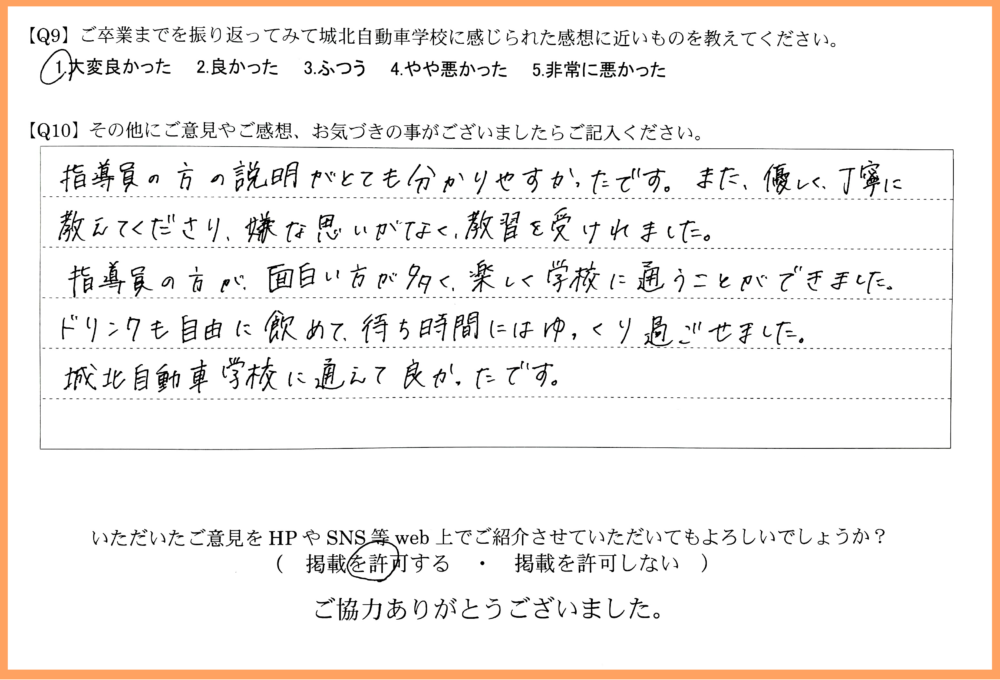 【Q9】ご卒業までを振り返ってみて城北自動車学校に感じられた感想に近いものを教えてください。
1.大変良かった 2.良かった 3.ふつう 4.やや悪かった 5.非常に悪かった
【Q10】その他にご意見やご感想、お気づきの事がございましたらご記入ください。
指導員の方の説明がとても分かりやすかったです。また、優しく、丁寧に
教えてくださり、嫌な思いがなく、教習を受けれました。
指導員の方が、面白い方が多く、楽しく学校に通うことができました。
ドリンクも自由に飲めて、待ち時間にはゆっくり過ごせました。
城北自動車学校に通えて良かったです。
いただいたご意見をHPやSNS等web上でご紹介させていただいてもよろしいでしょうか？
（ 掲載を許可する ・ 掲載を許可しない ）
ご協力ありがとうございました。